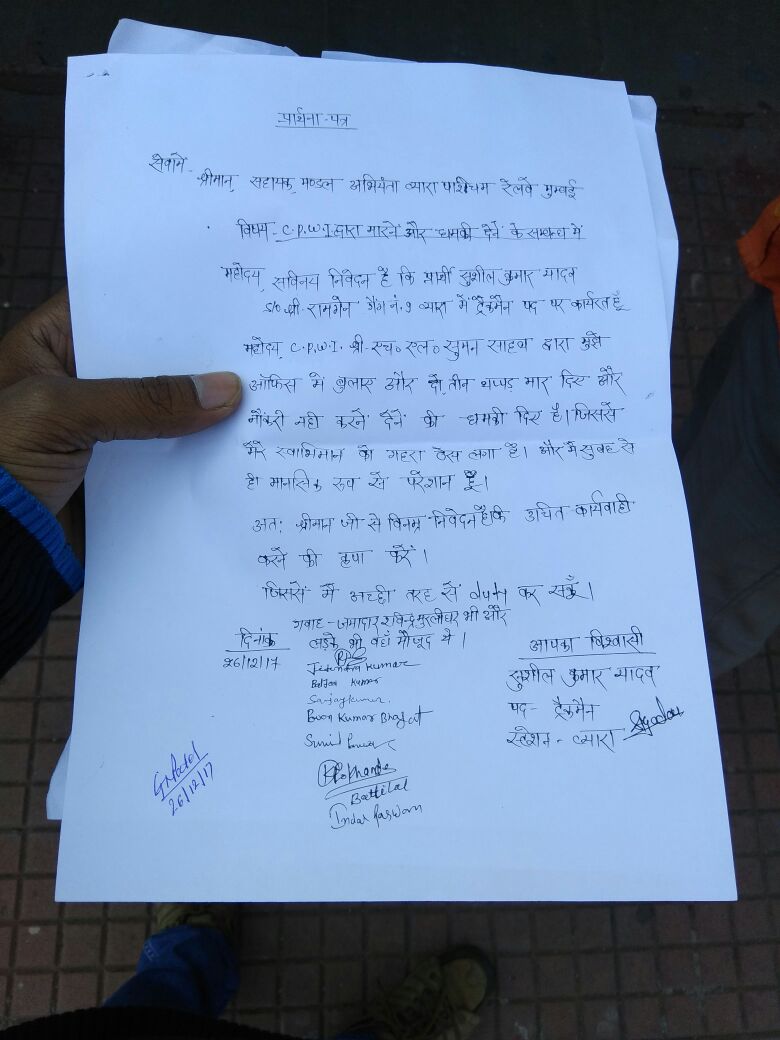 प्रार्थना-पत्र
सेवामें
श्रीमान्, सहायक मण्डल अभियंता व्यारा पाश्चिम रेलवे मुम्बई
विषय - C.P.W.I द्वारा मारने और धमकी देने के सम्बन्ध में
महोदय, सविनय निवेदन है कि प्रार्थी सुशील कुमार यादव
S/O श्री रामगेन गैंग नं. 9 व्यारा में ट्रैकमैन पद पर कार्यरत हूँ
महोदय, C.P.W.I. श्री एच॰ एल॰ सुमन साहब द्वारा मुझे
ऑफिस में बुलाए और दो, तीन थप्पड़ मार दिए और
नौकरी नही करने देने की धमकी दिए है। जिससे
मेरे स्वाभिमान को गहरा ठेस लगा है। और मैं सुबह से
ही मानसिक रूप से परेशान हूँ।
अतः श्रीमान जी से विनम्र निवेदन है कि उचित कार्यवाही
करने की कृपा करें।
जिससे मैं अच्छी तरह से duty कर सकूँ।
गवाह - जमादार रविन्द्र मुरलीधर भी और
लड़के भी वहाँ मौजूद थे।
दिनांक
26/12/17
Jitendra Kumar
Kumar
Sanjay kumar
Pawan Kumar Bhagat
Sunil
Battilal
Indal Paswan
आपका विश्वासी
सुशील कुमार यादव
पद - ट्रैकमैन
स्टेशन - व्यारा
26/12/17